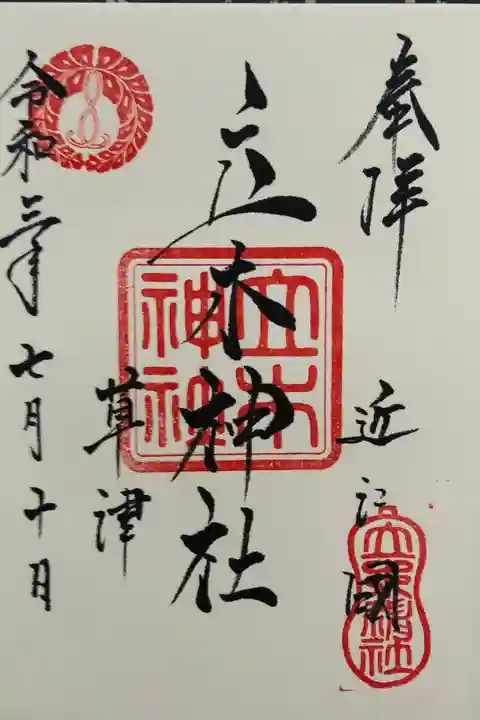 奉拝
近江國
立木神社
立木神社
草津
令和三年七月十日